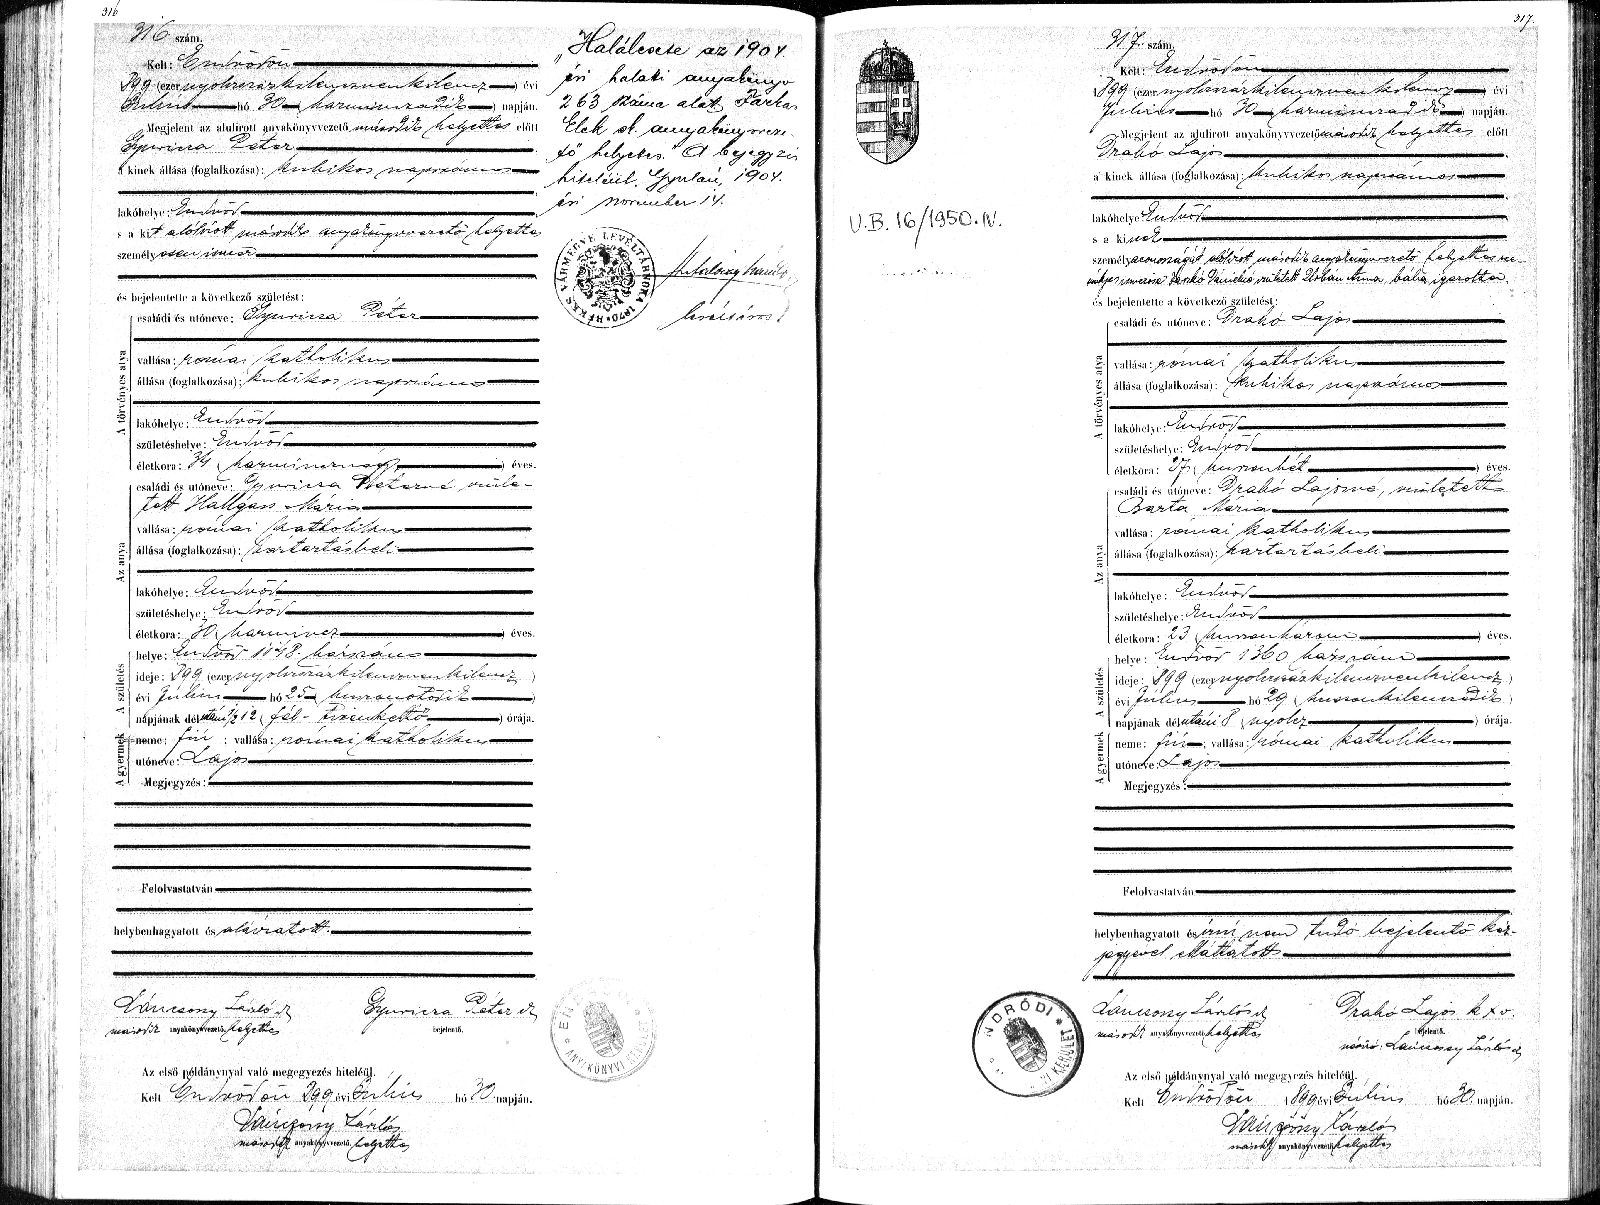 316
316 szám.
Kelt: Endrődön
899 (ezernyolcszázkilenczvenkilencz) évi
Július hó 30 (harminczadik) napján.
Megjelent az alulirott anyakönyvvezető második helyettes előtt
Gyuricza Péter
a kinek állása (foglalkozása): kubikos napszámos
lakóhelye: Endrőd
s a kit alólírott második anyakönyvvezető helyettes
személyesen ismer
és bejelentette a következő születést:
A törvényes atya
családi és utóneve: Gyuricza Péter
vallása: római katholikus
állása (foglalkozása): kubikos napszámos
lakóhelye: Endrőd
születéshelye: Endrőd
életkora: 34 (harmincznégy) éves.
Az anya
családi és utóneve: Gyuricza Péterné szüle-
tett Hallgass Mária
vallása: római katholikus
állása (foglalkozása): háztartásbeli
lakóhelye: Endrőd
születéshelye: Endrőd
életkora: 30 (harmincz) éves.
A születés
helye: Endrőd 1048. házszám
ideje: 899 (ezernyolcszázkilenczvenkilencz)
évi Július hó 25 (huszonötödik)
napjának délutáni 1/2 12 (fél-tizenkettő) órája.
A gyermek
neme: fiú; vallása: római katholikus
utóneve: Lajos
Megjegyzés:
Felolvastatván
helybenhagyatott és aláíratott.
Láncsosy László sk
második anyakönyvvezető helyettes
Gyuricza Péter sk
bejelentő.
Az első példánynyal való megegyezés hiteléül.
Kelt Endrődön 899 évi Július hó 30. napján.
Láncsosy László
második anyakönyvvezető helyettes
„Halálesete az 1904.
évi halotti anyakönyv
263 száma alatt, Farkas
Elek sk. anyakönyvveze-
tő helyettes." A bejegyzés
hiteléül. Gyulán, 1904.
évi november 14.
BÉKÉS VÁRMEGYE LEVÉLTÁRNOKA 1870
levéltáros
ENDRŐDI ANYAKÖNYVI KERÜLET
317.
317. szám.
Kelt: Endrődön
1899 (ezernyolcszázkilenczvenkilencz) évi
Július hó 30 (harminczadik) napján.
Megjelent az alulirott anyakönyvvezető második helyettes előtt
Drabó Lajos
a kinek állása (foglalkozása): kubikos napszámos
lakóhelye: Endrőd
s a kinek
személyazonosságát alólírott második anyakönyvvezető helyettes sze-
mélyes ismerőse Dániélné született Anna, bába igazolta
és bejelentette a következő születést:
A törvényes atya
családi és utóneve: Drabó Lajos
vallása: római katholikus
állása (foglalkozása): kubikos napszámos
lakóhelye: Endrőd
születéshelye: Endrőd
életkora: 27 (huszonhét) éves.
Az anya
családi és utóneve: Drabó Lajosné, született
Barta Mária
vallása: római katholikus
állása (foglalkozása): háztartásbeli
lakóhelye: Endrőd
születéshelye: Endrőd
életkora: 23 (huszonhárom) éves.
A születés
helye: Endrőd 1360 házszám
ideje: 899 (ezernyolcszázkilenczvenkilencz)
évi Július hó 29 (huszonkilenczedik)
napjának délutáni 8 (nyolcz) órája.
A gyermek
neme: fiú; vallása: római katholikus
utóneve: Lajos
Megjegyzés:
Felolvastatván
helybenhagyatott és írni nem tudó bejelentő kéz-
jegyével elláttatott
Láncsosy László sk
második anyakönyvvezető helyettes
Drabó Lajos k x v.
bejelentő.
névíró: Láncsosy László sk
Az első példánynyal való megegyezés hiteléül.
Kelt Endrődön 1899 évi Július hó 30. napján.
Láncsosy László
második anyakönyvvezető helyettes
V.B. 16/1950. IV.
NDRŐDI KERÜLET